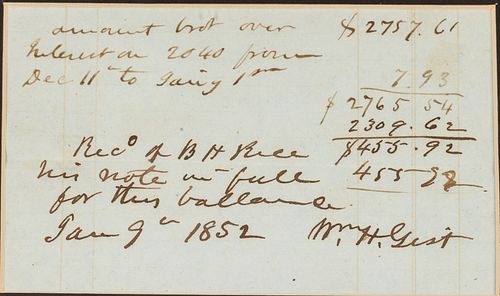 amount brot over $2757.61
Interest on 2040 from
Dec 11th to Jany 1st 7.93
$2765 54
2309.62
Recd of B H Rice $455.92
his note in full 455 92
for this ballance
Jany 9th 1852 Wm. H. Gist